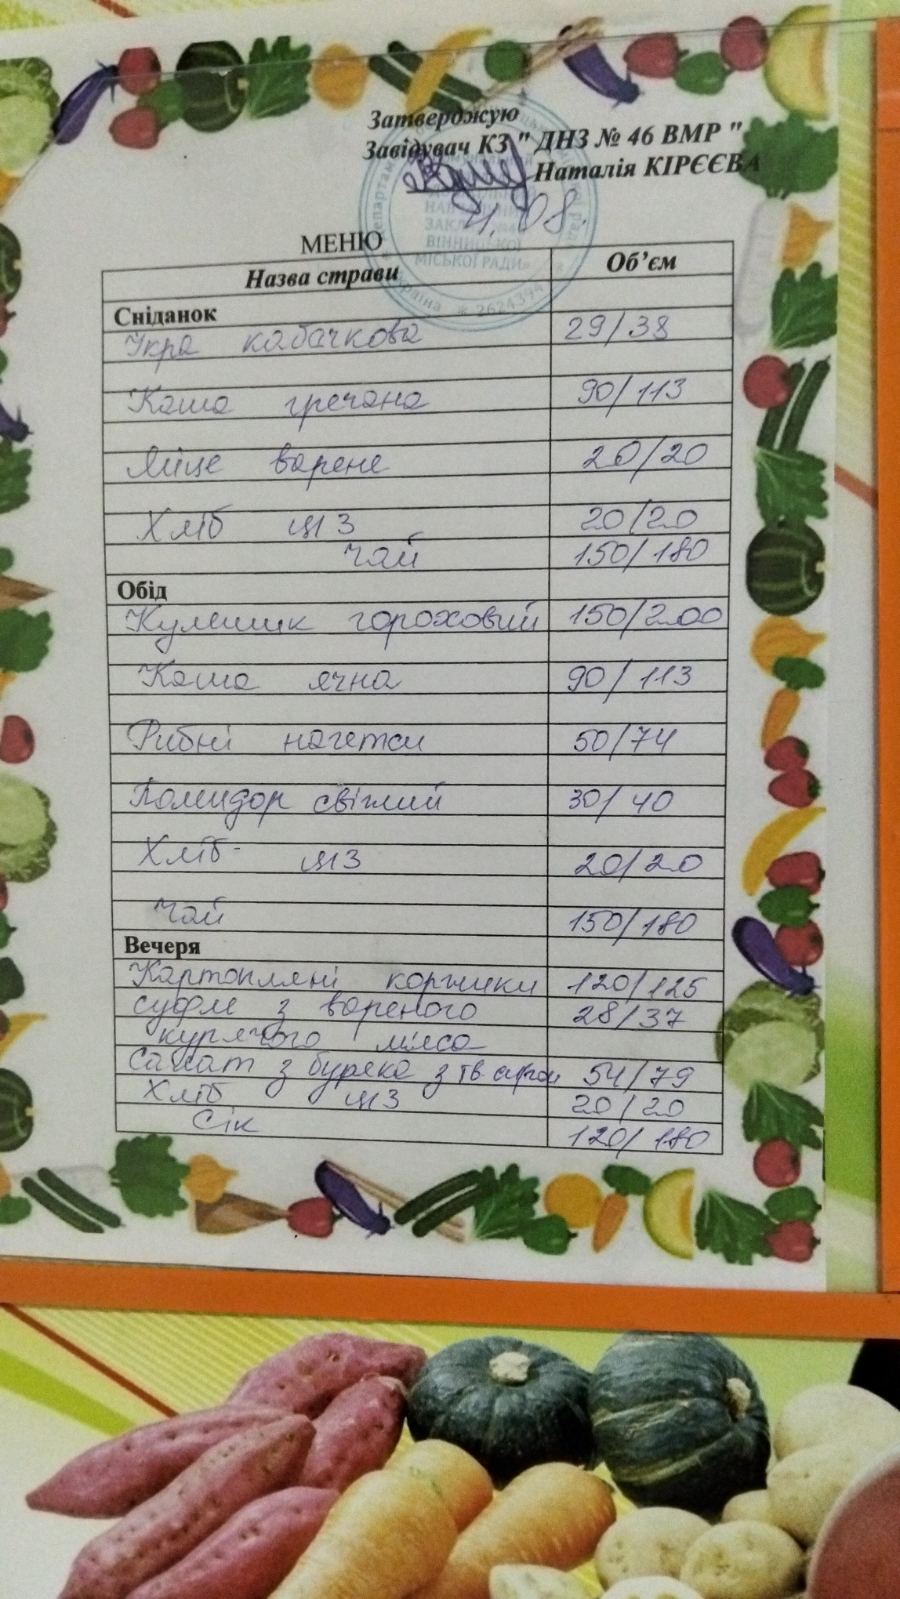 Затверджую
Завідувач КЗ " ДНЗ № 46 ВМР "
Наталія КІРЄЄВА
НАВЧАЛЬНИЙ
ЗАКЛАД №46
ВІННИЦЬКОЇ
МІСЬКОЇ РАДИ»
МЕНЮ
Назва страви Об'єм
Сніданок
Ікра кабачкова 29/38
Каша гречана 90/113
Яйце варене 20/20
Хліб ЦІЗ 20/20
Чай 150/180
Обід
Кулешик гороховий 150/200
Каша ячна 90/113
Рибні нагетси 50/74
Помидор свіжий 30/40
Хліб- ЦІЗ 20/20
Чай 150/180
Вечеря
Картопляні коржики 120/125
суфле з вареного 28/37
курячого мяса
Салат з буряка з тв. сиром 54/79
Хліб ЦІЗ 20/20
Сік 120/180